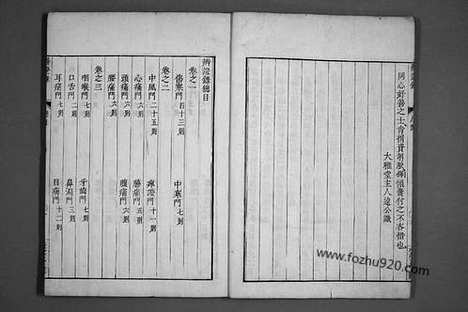 同心好善之士肯捐資刻獻
付之不吝惜也
大雅堂主人遠公識
辨證錄總目
卷之一
傷寒門四十三則
中寒門七則
卷之二
中風門二十五則
痹證門十一則
心痛門六則
脇痛門五則
頭痛門六則
腹痛門六則
腰痛門六則
卷之三
咽喉門七則
牙齒門七則
口舌門二則
鼻淵門三則
耳痛門七則
目痛門十二則
www.fozhu920.com